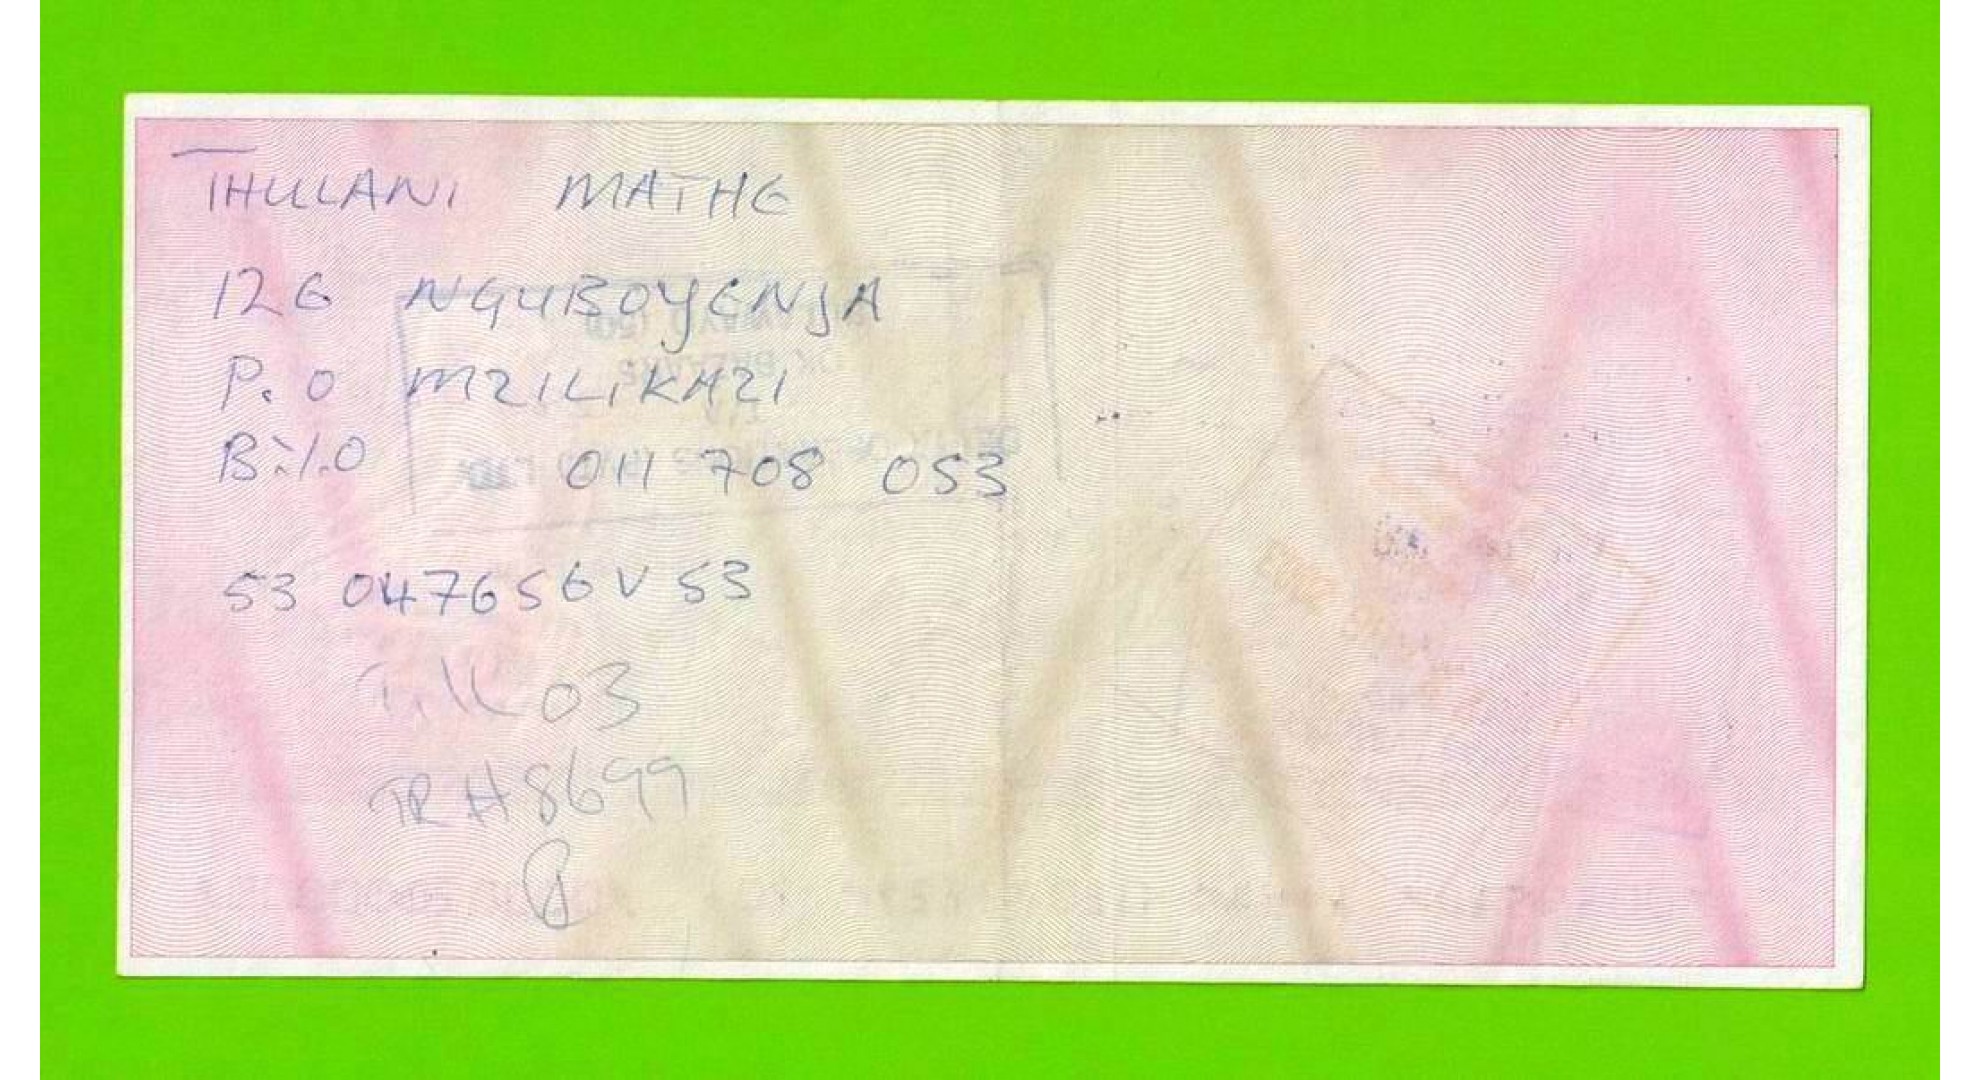 THULANI MATHE
126 NGUBOYENJA
P.O MZILIKAZI
B.Y.O 011 708 053
53 047656 V 53
Till 03
TR H8699